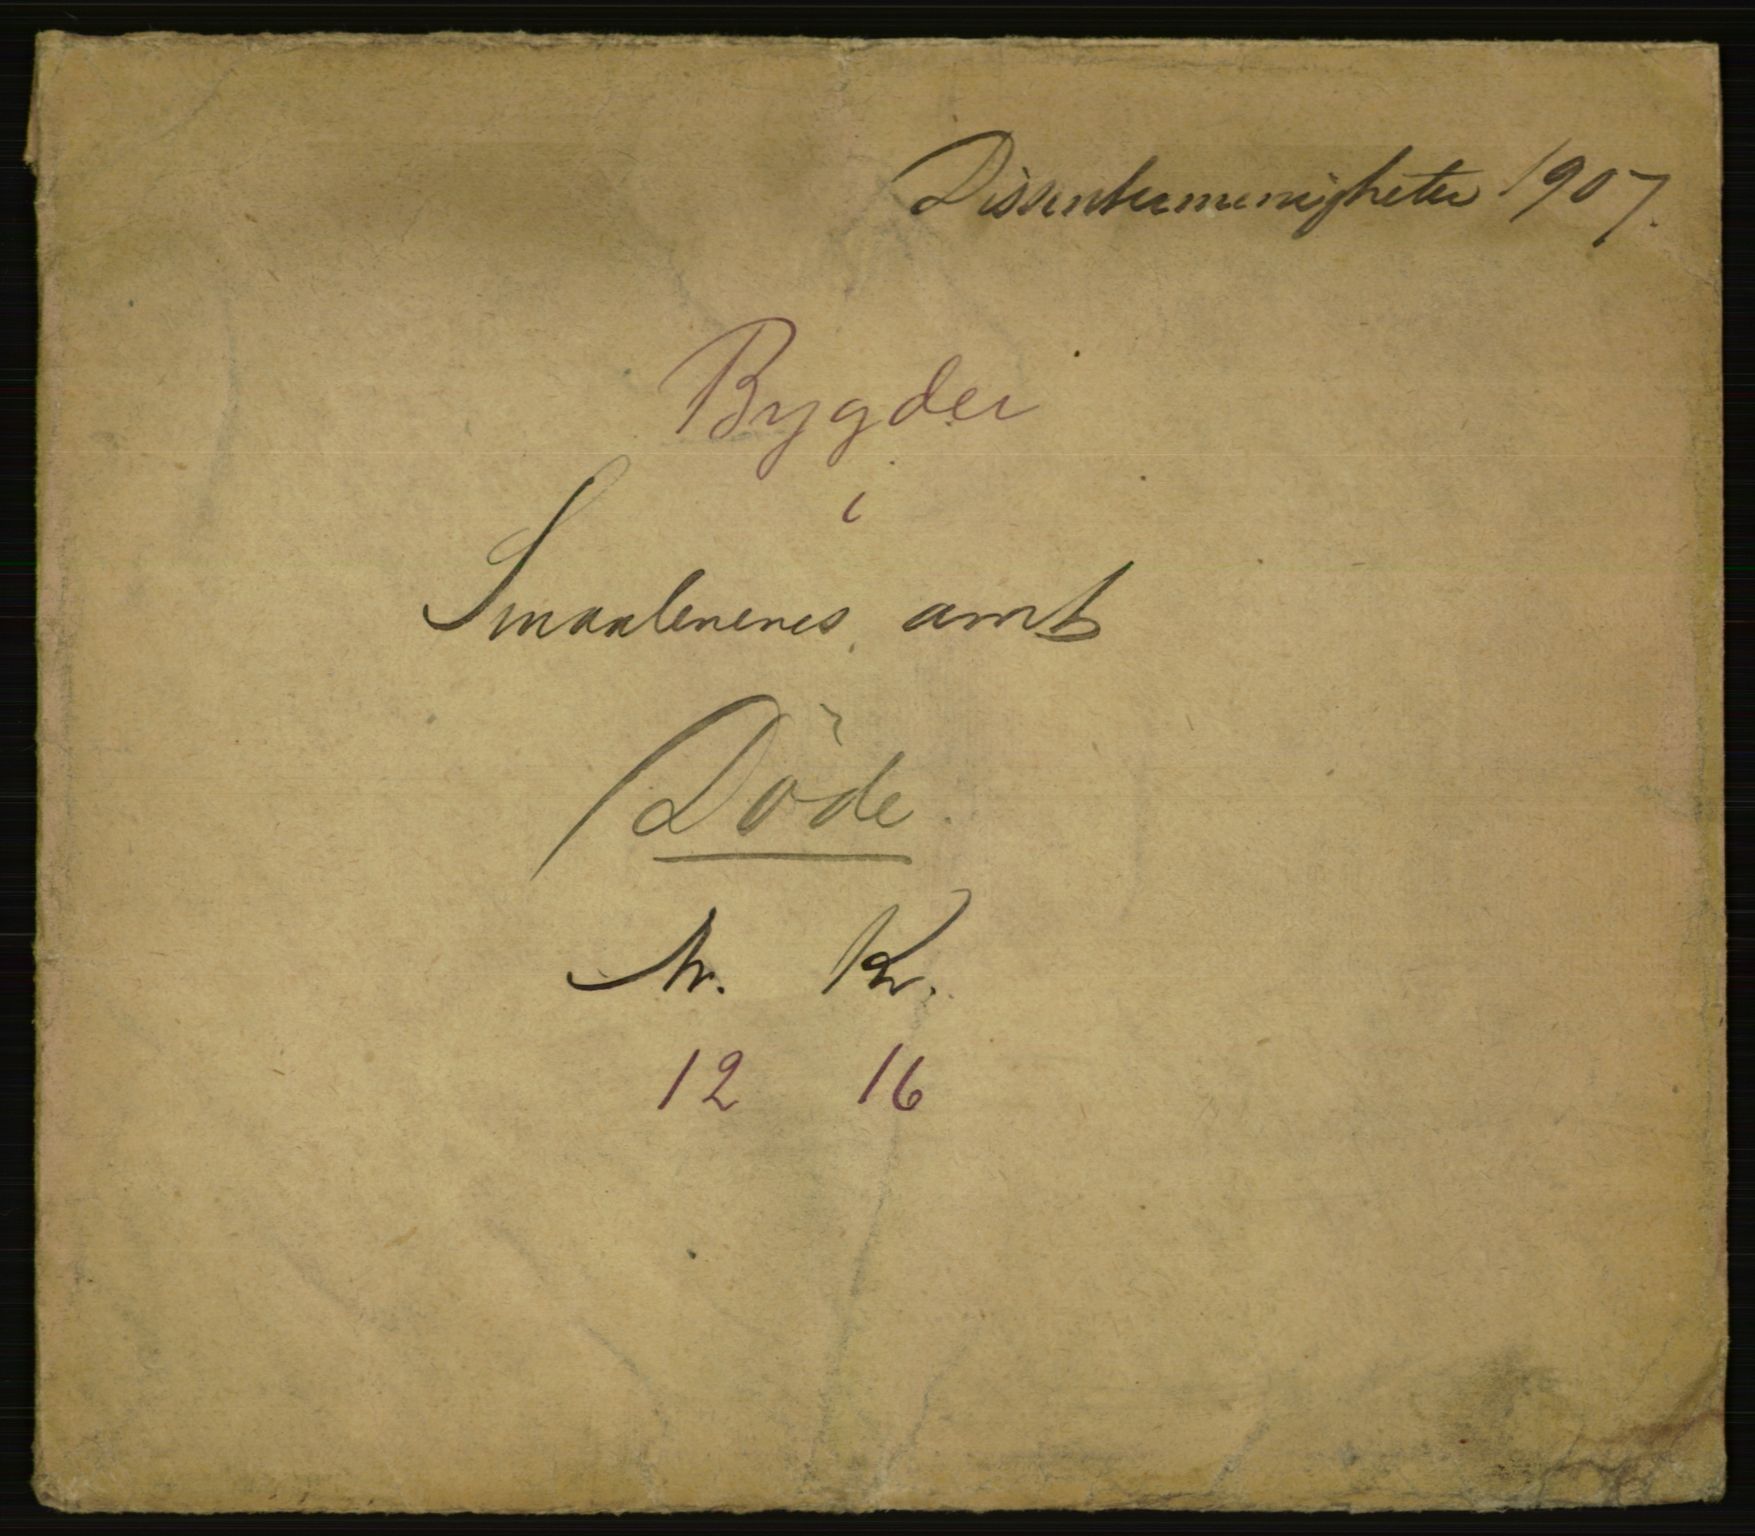 Dissentermenigheter 1907.
Bygder
i
Smaalenenes amt
Døde
M. Kv.
12 16